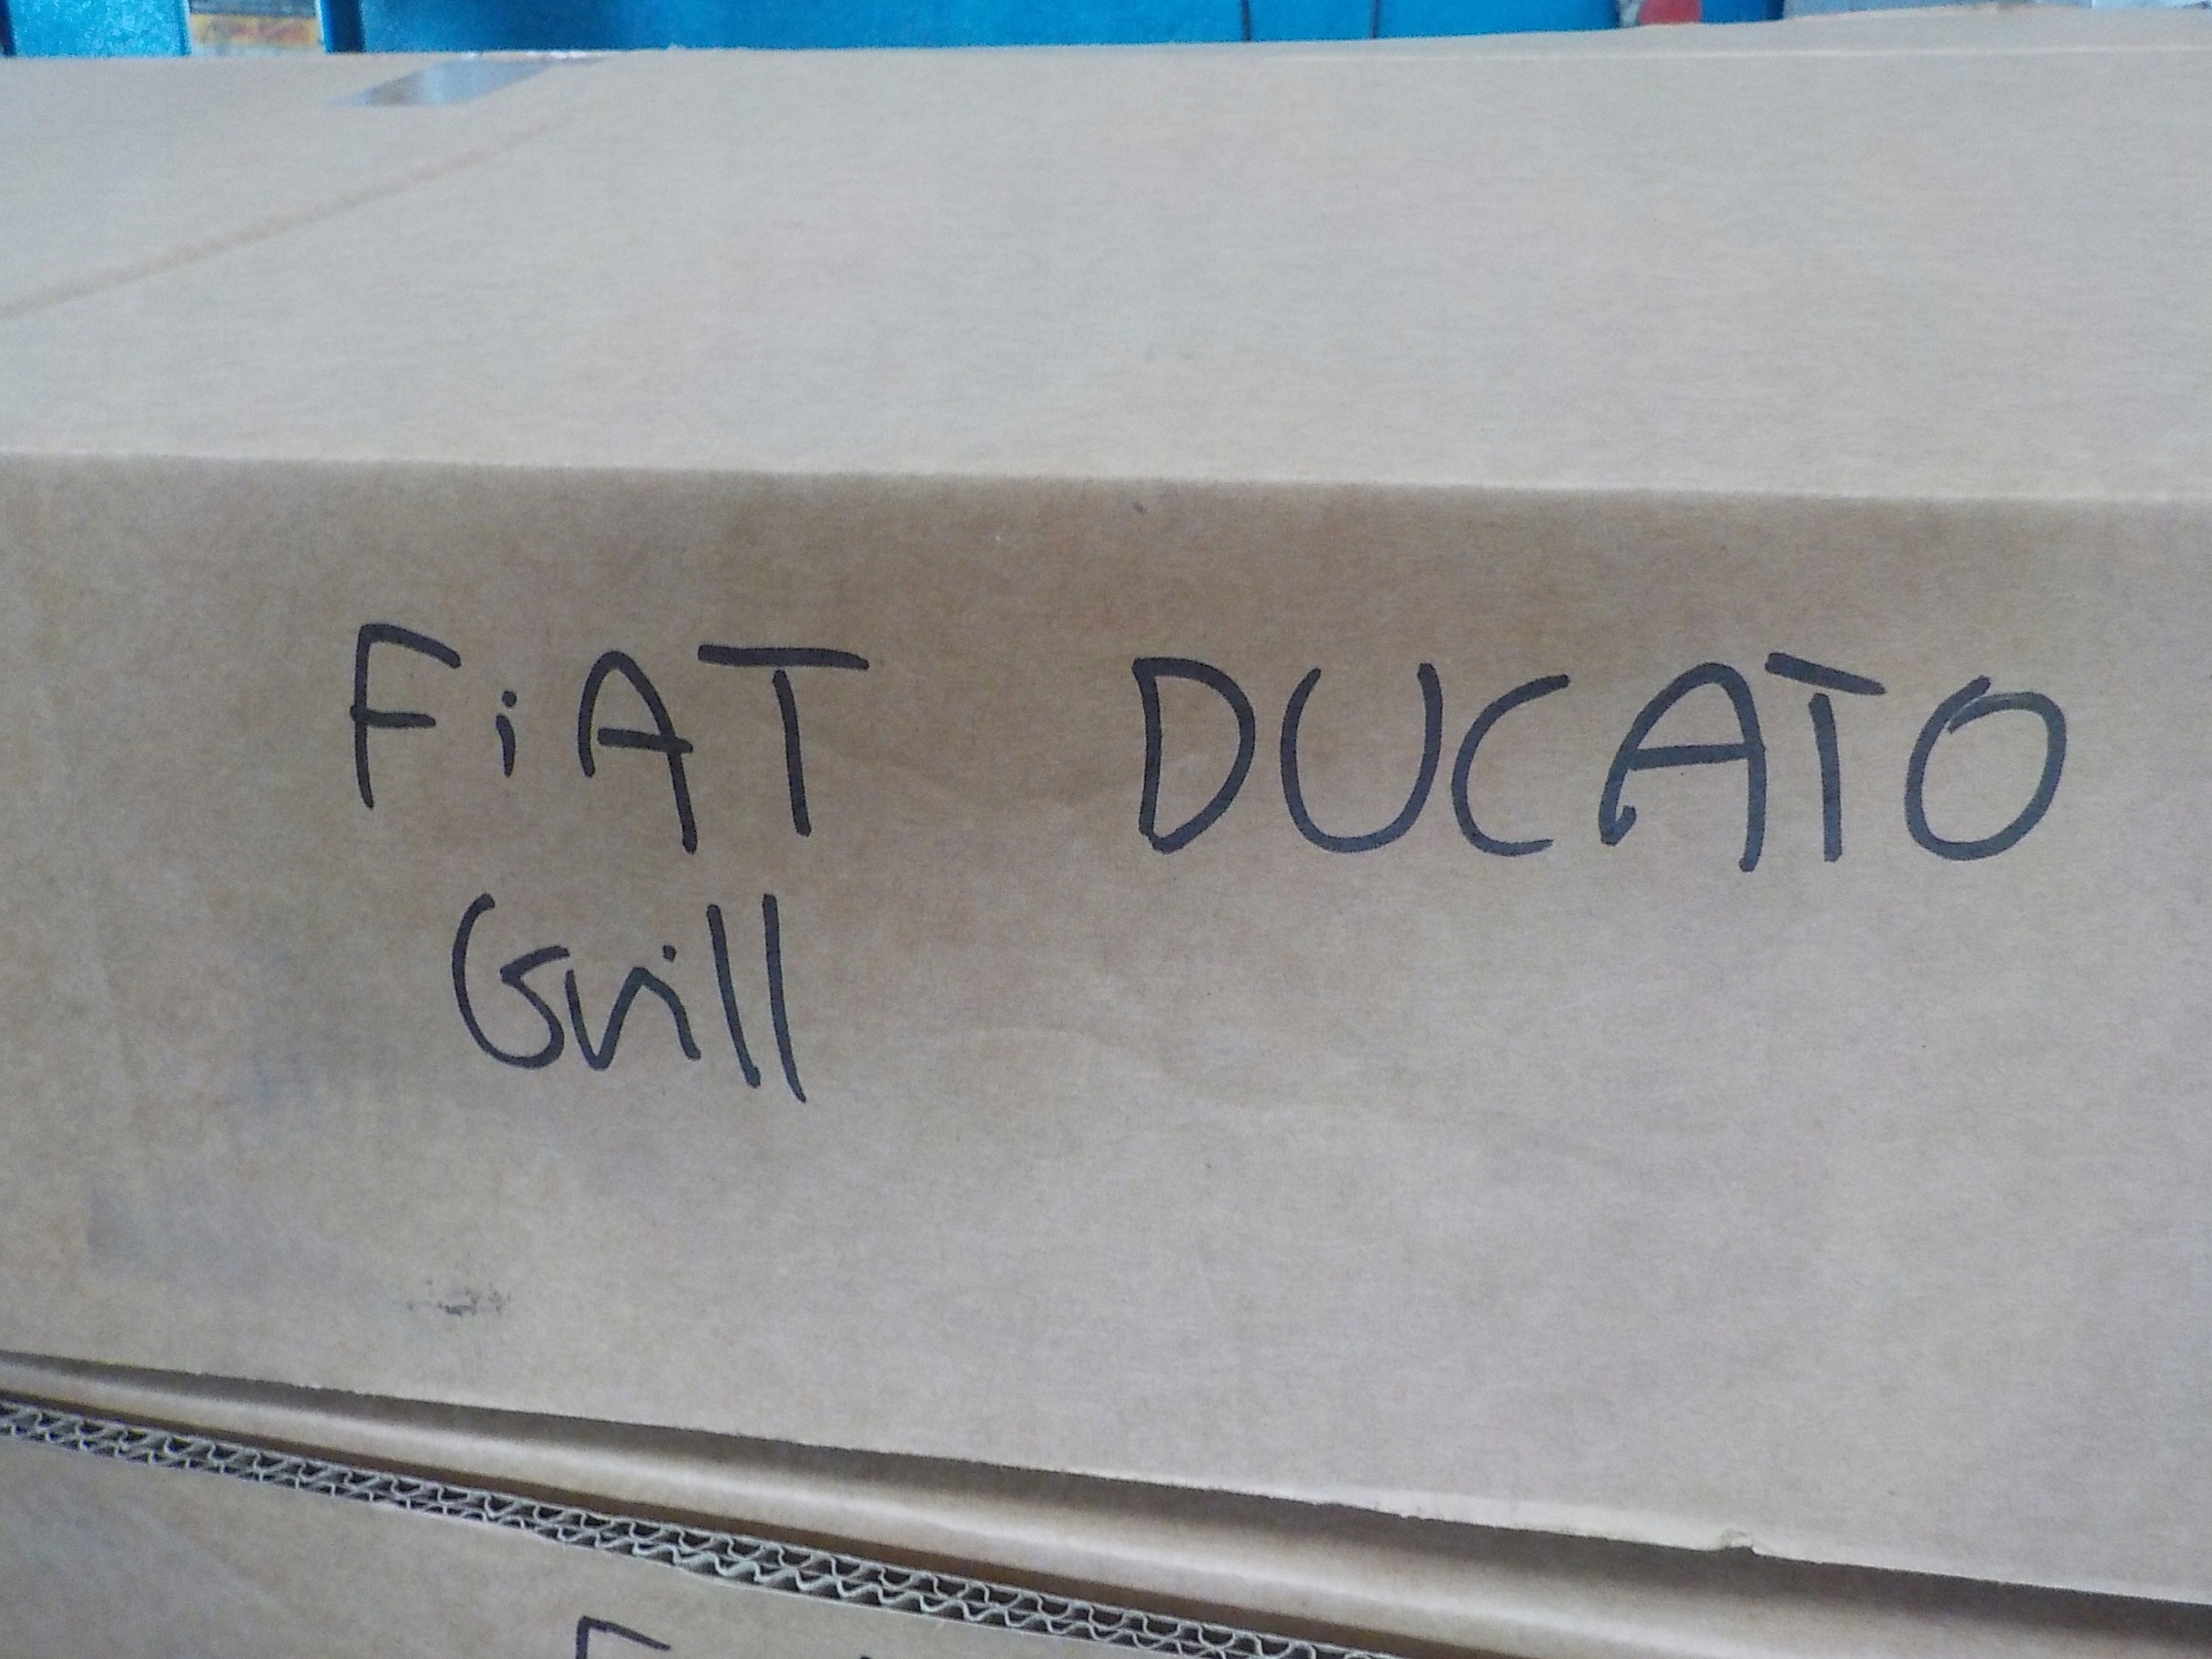 FiAT DUCATO
Grill